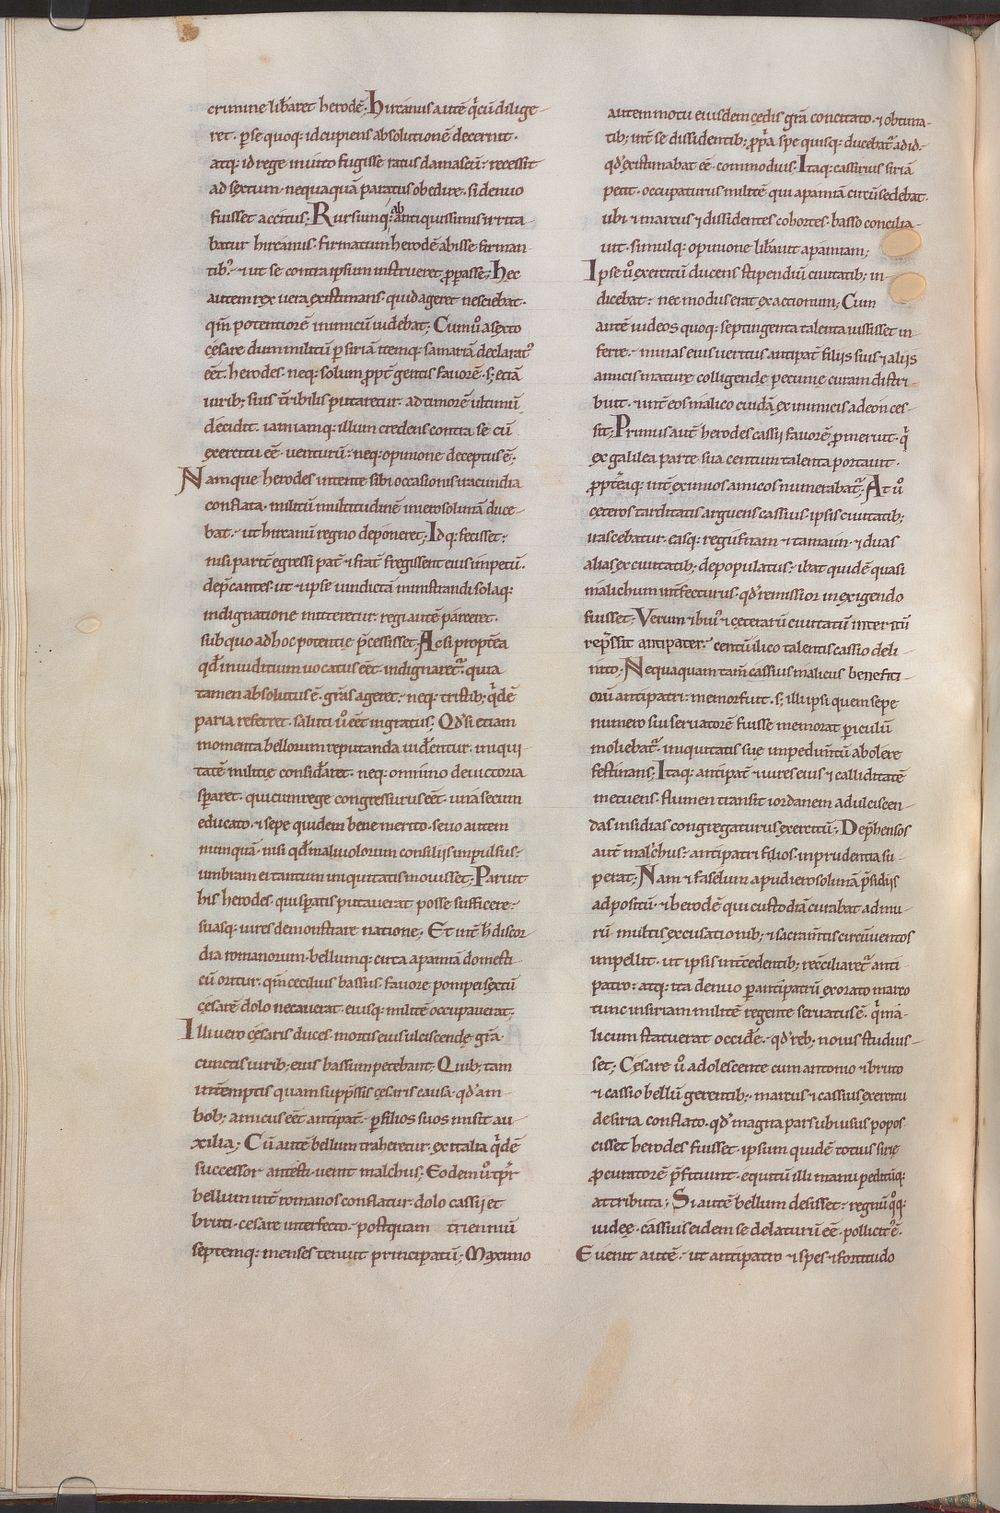 crimine lib̄aret herodē. Hircanus autē q̇ cū dilige-
ret. ꝑ se quoq; id cupiens absolutionē decernit.
atq; id rege inuito fugisse ratus damascū: recessit
ad sextum. nequaquā paratus obedire. si denuo
fuisset accitus. Rursumq; ab antiquissimis irrita
batur hircanus. firmatum herodē abisse firman-
tib;. ⁊ ut se contra ipsum instrueret p̄parasse; Hec
autem rex uera existimans. quid ageret nesciebat.
qm̄ potentiorē inimicū uidebat; Cum u̇ a sexto
cęsare dum militū ꝑ siriā itemq; samariā declarat᷒
eēt. herodes. neq; solum ꝓpt̄ gentis fauorē. s; etiā
uirib; suis t̄ribilis putaretur. ad timorē ultimū
decidit. iamiamq; illum credens contra se cū
exercitu eē. uenturū: neq; opinione deceptus ē;
Namque herodes intente sibi occasionis iracundia
conflata. militū multitudinē in ierosolimā duce-
bat. ut hircanū regno deponeret; Idq; fecisset:
nisi part̄ egressi pat̄ ⁊ frat̄ fregissent eius impetū.
dep̄cantes. ut ⁊ ipse uindictā ministrandi solaq;
indignatione mitteretur. regi autē parceret.
sub quo ad hoc potentie p̄cessisset; Ac si propt̄ea
qd̄ in iuditium uocatus eēt. indignaret᷒. quia
tamen absolutus ē. grās ageret: neq; tristib; q̇dē
paria referret. saluti u̇ eēt ingratus; Qd̄ si etiam
momenta bellorum reputanda uid̄entur. iniqui-
tatē militię consid̄aret. neq; omnino de uictoria
sꝑaret. qui cum rege congressurus eēt. una secum
educato. ⁊ sepe quidem bene merito. seuo autem
nunquā. nisi qd̄ maliuolorum consiliis impulsus:
umbram ei tantum iniquitatis mouisset; Paruit
his herodes. qui sꝑatis putauerat posse sufficere:
suasq; uires demonstrare natione; Et int̄ h̄ discor-
dia romanorum. bellumq; circa apamiā domesti-
cū oritur. qm̄ cecilius bassus. fauore pompei sextū
cęsarē dolo necauerat. eiusq; militē occupauerat;
Illi uero cęsaris duces. mortis eius ulciscendę grā.
cunctis uirib; eius bassum petebant; Quib; tam
int̄emptis quam supp̄ssis cęsaris causa. qd̄ am-
bob; amicus eēt antipat̄. ꝑ filios suos misit au-
xilia; Cū autē bellum traheretur. ex italia q̇dē
successor antesti. uenit malchus; Eodem u̇ tp̄r
bellum int̄ romanos conflatur. dolo cassii et
bruti. cesare interfecto. postquam trienniū
septemq; menses tenuit principatū; Maximo
autem motu eiusdem cędis grā concitato. ⁊ obtima-
tib; int̄ se dissidentib; ꝓp̄a spe quisq; ducebat᷒ ad id.
qd̄ existimabat eē. commodius. Itaq; cassirus siriā
petit. occupaturus militē qui apamiā circūsedebat.
ubi ⁊ marcus ⁊ dissidentes cohortes. basso concilia-
uit. simulq; opinione lib̄auit apamiam;
Ipse u̇ exercitū ducens. stipendiū ciuitatib; in-
dicebat: nec modus erat exactionum; Cum
autē iudeos quoq; septingenta talenta iussisset in-
ferre. minas eius ueritus antipat̄. filiis suis ⁊ aliis
amicis mature colligendę pecunię curam distri-
buit. int̄ eos malico cuidā ex inimicis adeo neces-
sit; Primus aut̄ herodes cassii fauorē ꝓmeruit. q̇
ex galilea parte sua centum talenta portauit.
ꝓpt̄eaq; int̄ eximios amicos numerabat᷒. At u̇
cęteros tarditatis arguens cassius. ipsis ciuitatib;
irascebatur. easq; regufnam ⁊ tamaim. ⁊ duas
alias ex ciuitatib; depopulatus: ibat quidē quasi
malichum int̄fecturus. qd̄ remissior in exigendo
fuisset. Verum ⁊ ibui᷒ ⁊ ceterarū ciuitatū interitū
rep̄ssit antipater: centū ilico talentis cassio deli-
nito; Nequaquam tam̄ cassius malicus benefiti-
orū antipatri. memor fuit. s; illi ipsi quem sepe
numero sui seruatorē fuisse memorat periculū
moliebat᷒. iniquitatis suę impedim̄tū abolere
festinans; Itaq; antipat̄ ⁊ uires eius ⁊ calliditatē
metuens. flumen transit iordanem ad ulciscen-
das insidias congregaturus exercitū; Dep̄hensos
aut̄ malchus: antipatri filios. inprudentia su-
perat; Nam ⁊ faselum apud ierosolimā p̄sidiis
adpositū. ⁊ herodē qui custodiā curabat admi-
rū. multis excusationib; ⁊ sacram̄tis circūuentos
impellit. ut ipsis int̄cedentib; reconciliaret᷒ anti-
patro. atq; ita denuo ꝑ antipatrū exorato marco
tunc in siriam militē regente seruatus ē. q̇ ma-
licum statuerat occid̄e. qd̄ reb; nouis studuis-
set; Cęsare u̇ adolescente cum antonio ⁊ bruto
⁊ cassio bellū gerentib; marcus ⁊ cassius exercitu
de siria conflato. qd̄ magna pars ubi usus popos-
cisset herodes fuisset. ipsum quidē totius sirię
ꝓcuratorē p̄ficiunt. equitū illi manu peditūq;
attributa; Si autē bellum desisset: regnū q̇q;
iudeę. cassius eidem se delaturū eē. pollicit᷒ ē.
Euenit autē. ut antipatro ⁊ spes ⁊ fortitudo